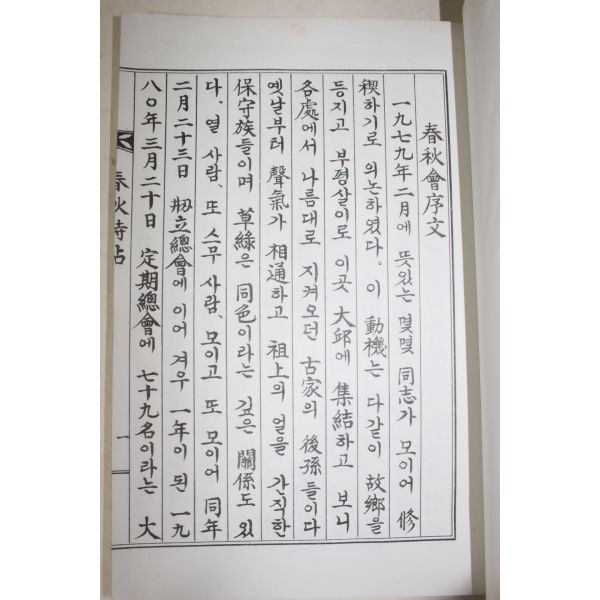 春秋會序文
一九七九年二月에 뜻있는 몇몇 同志가 모이어 修
稧하기로 의논하였다. 이 動機는 다같이 故鄉을
등지고 부평살이로 이곳 大邱에 集結하고 보니
各處에서 나름대로 지켜오던 古家의 後孫들이다
옛날부터 聲氣가 相通하고 祖上의 얼을 간직한
保守族들이며 草綠은 同色이라는 깊은 關係도 있
다. 열 사람, 또 스무 사람, 모이고 또 모이어 同年
二月二十三日 刱立總會에 이어 겨우 一年이 된 一九
八〇年三月二十日 定期總會에 七十九名이라는 大
春秋詩帖
一